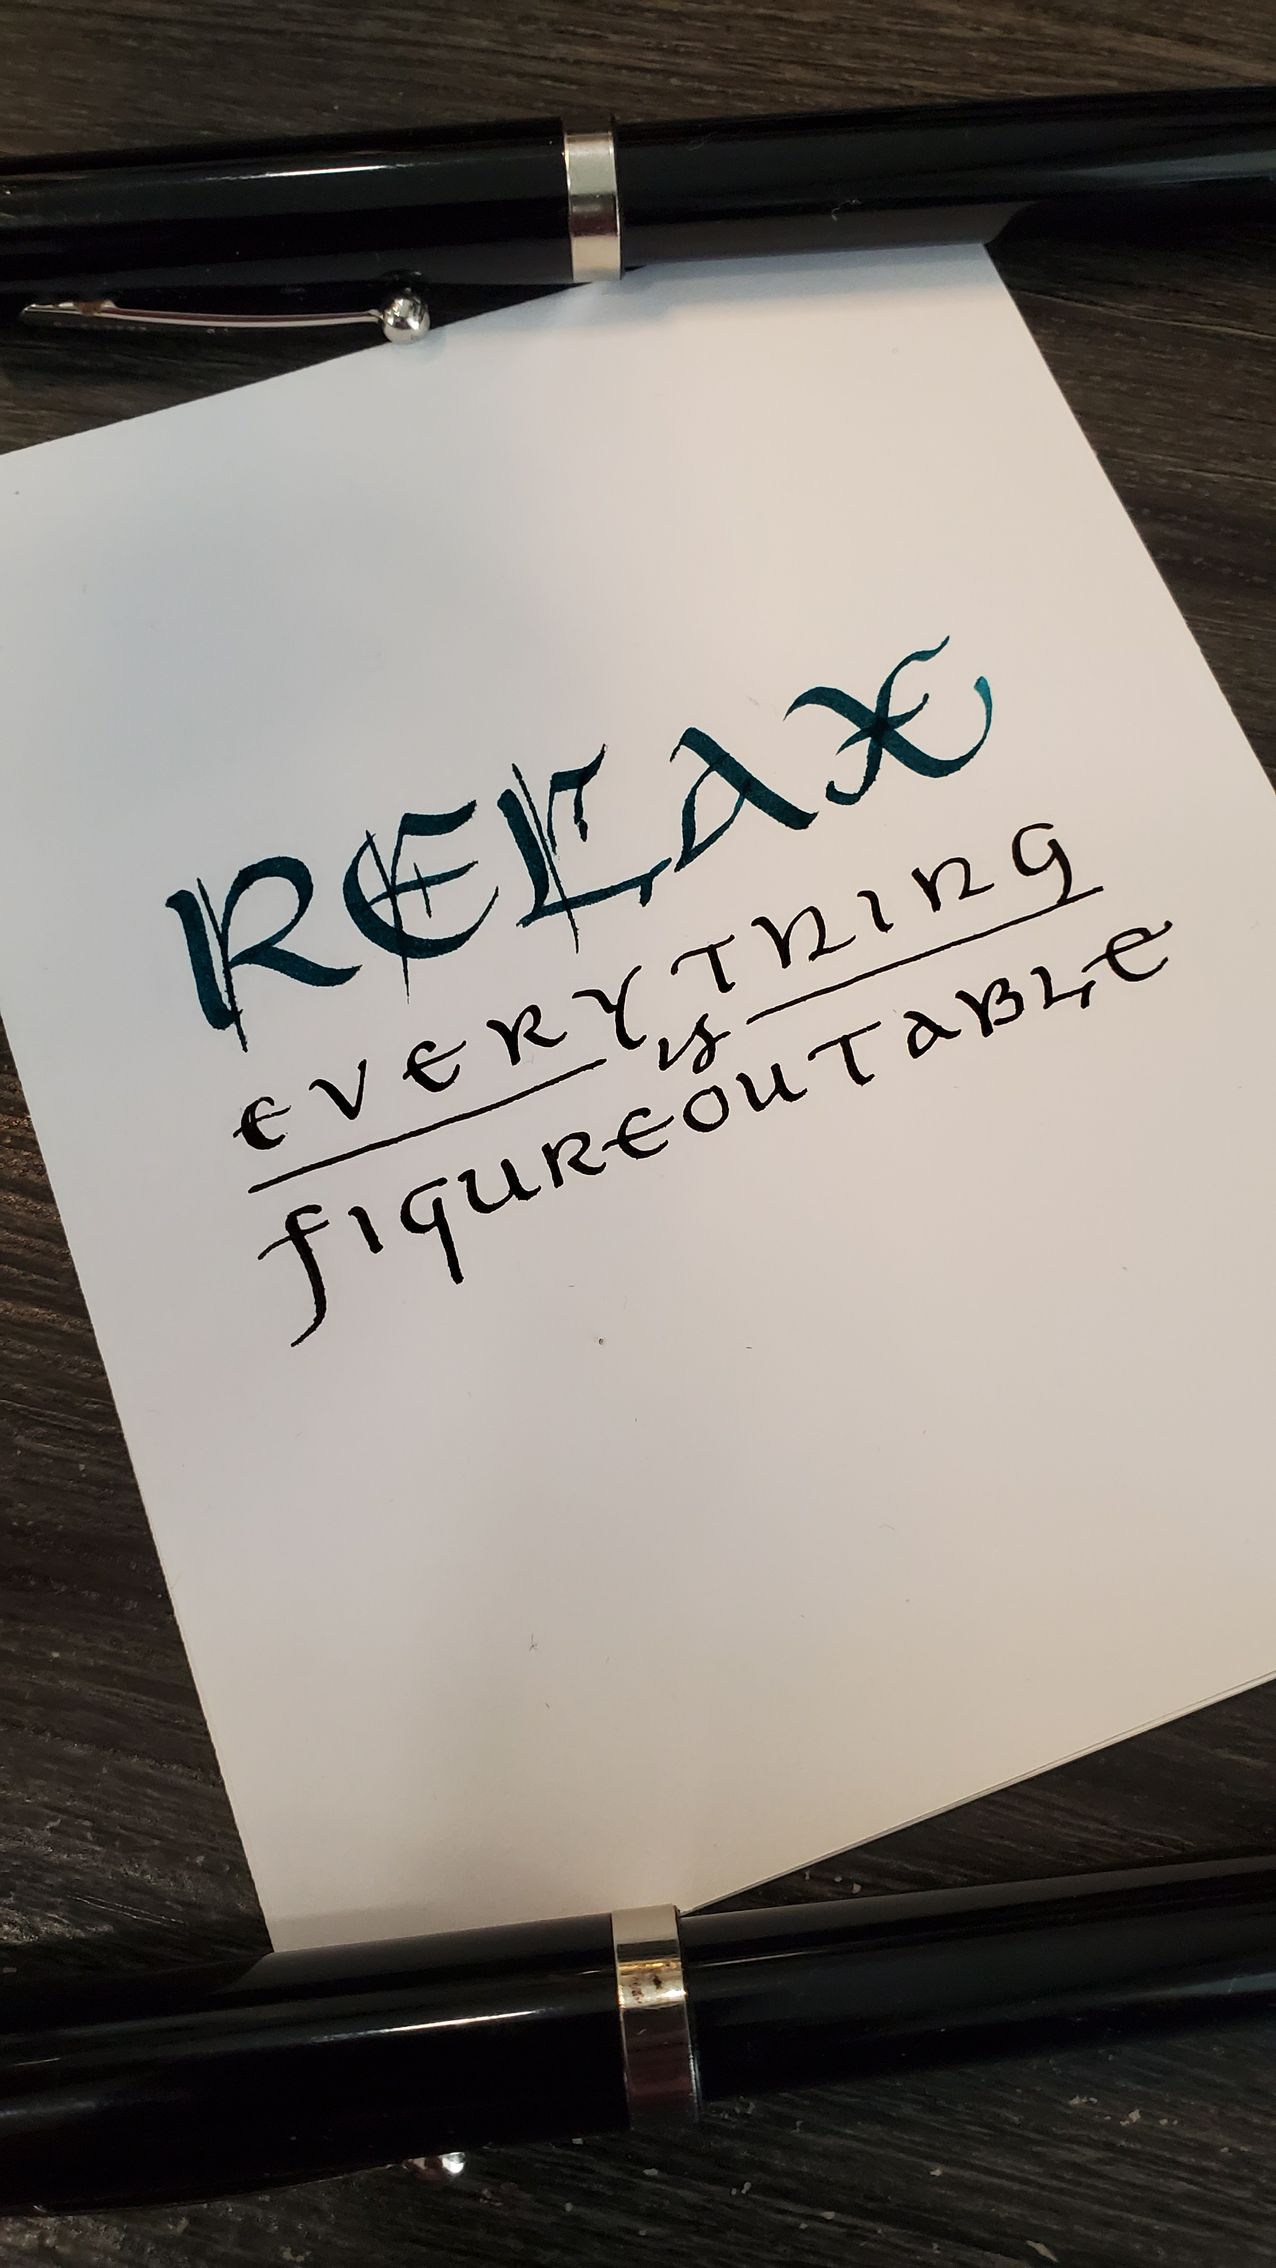 RELAX
EVERYTHING
is
fIGUREOUTaBLE